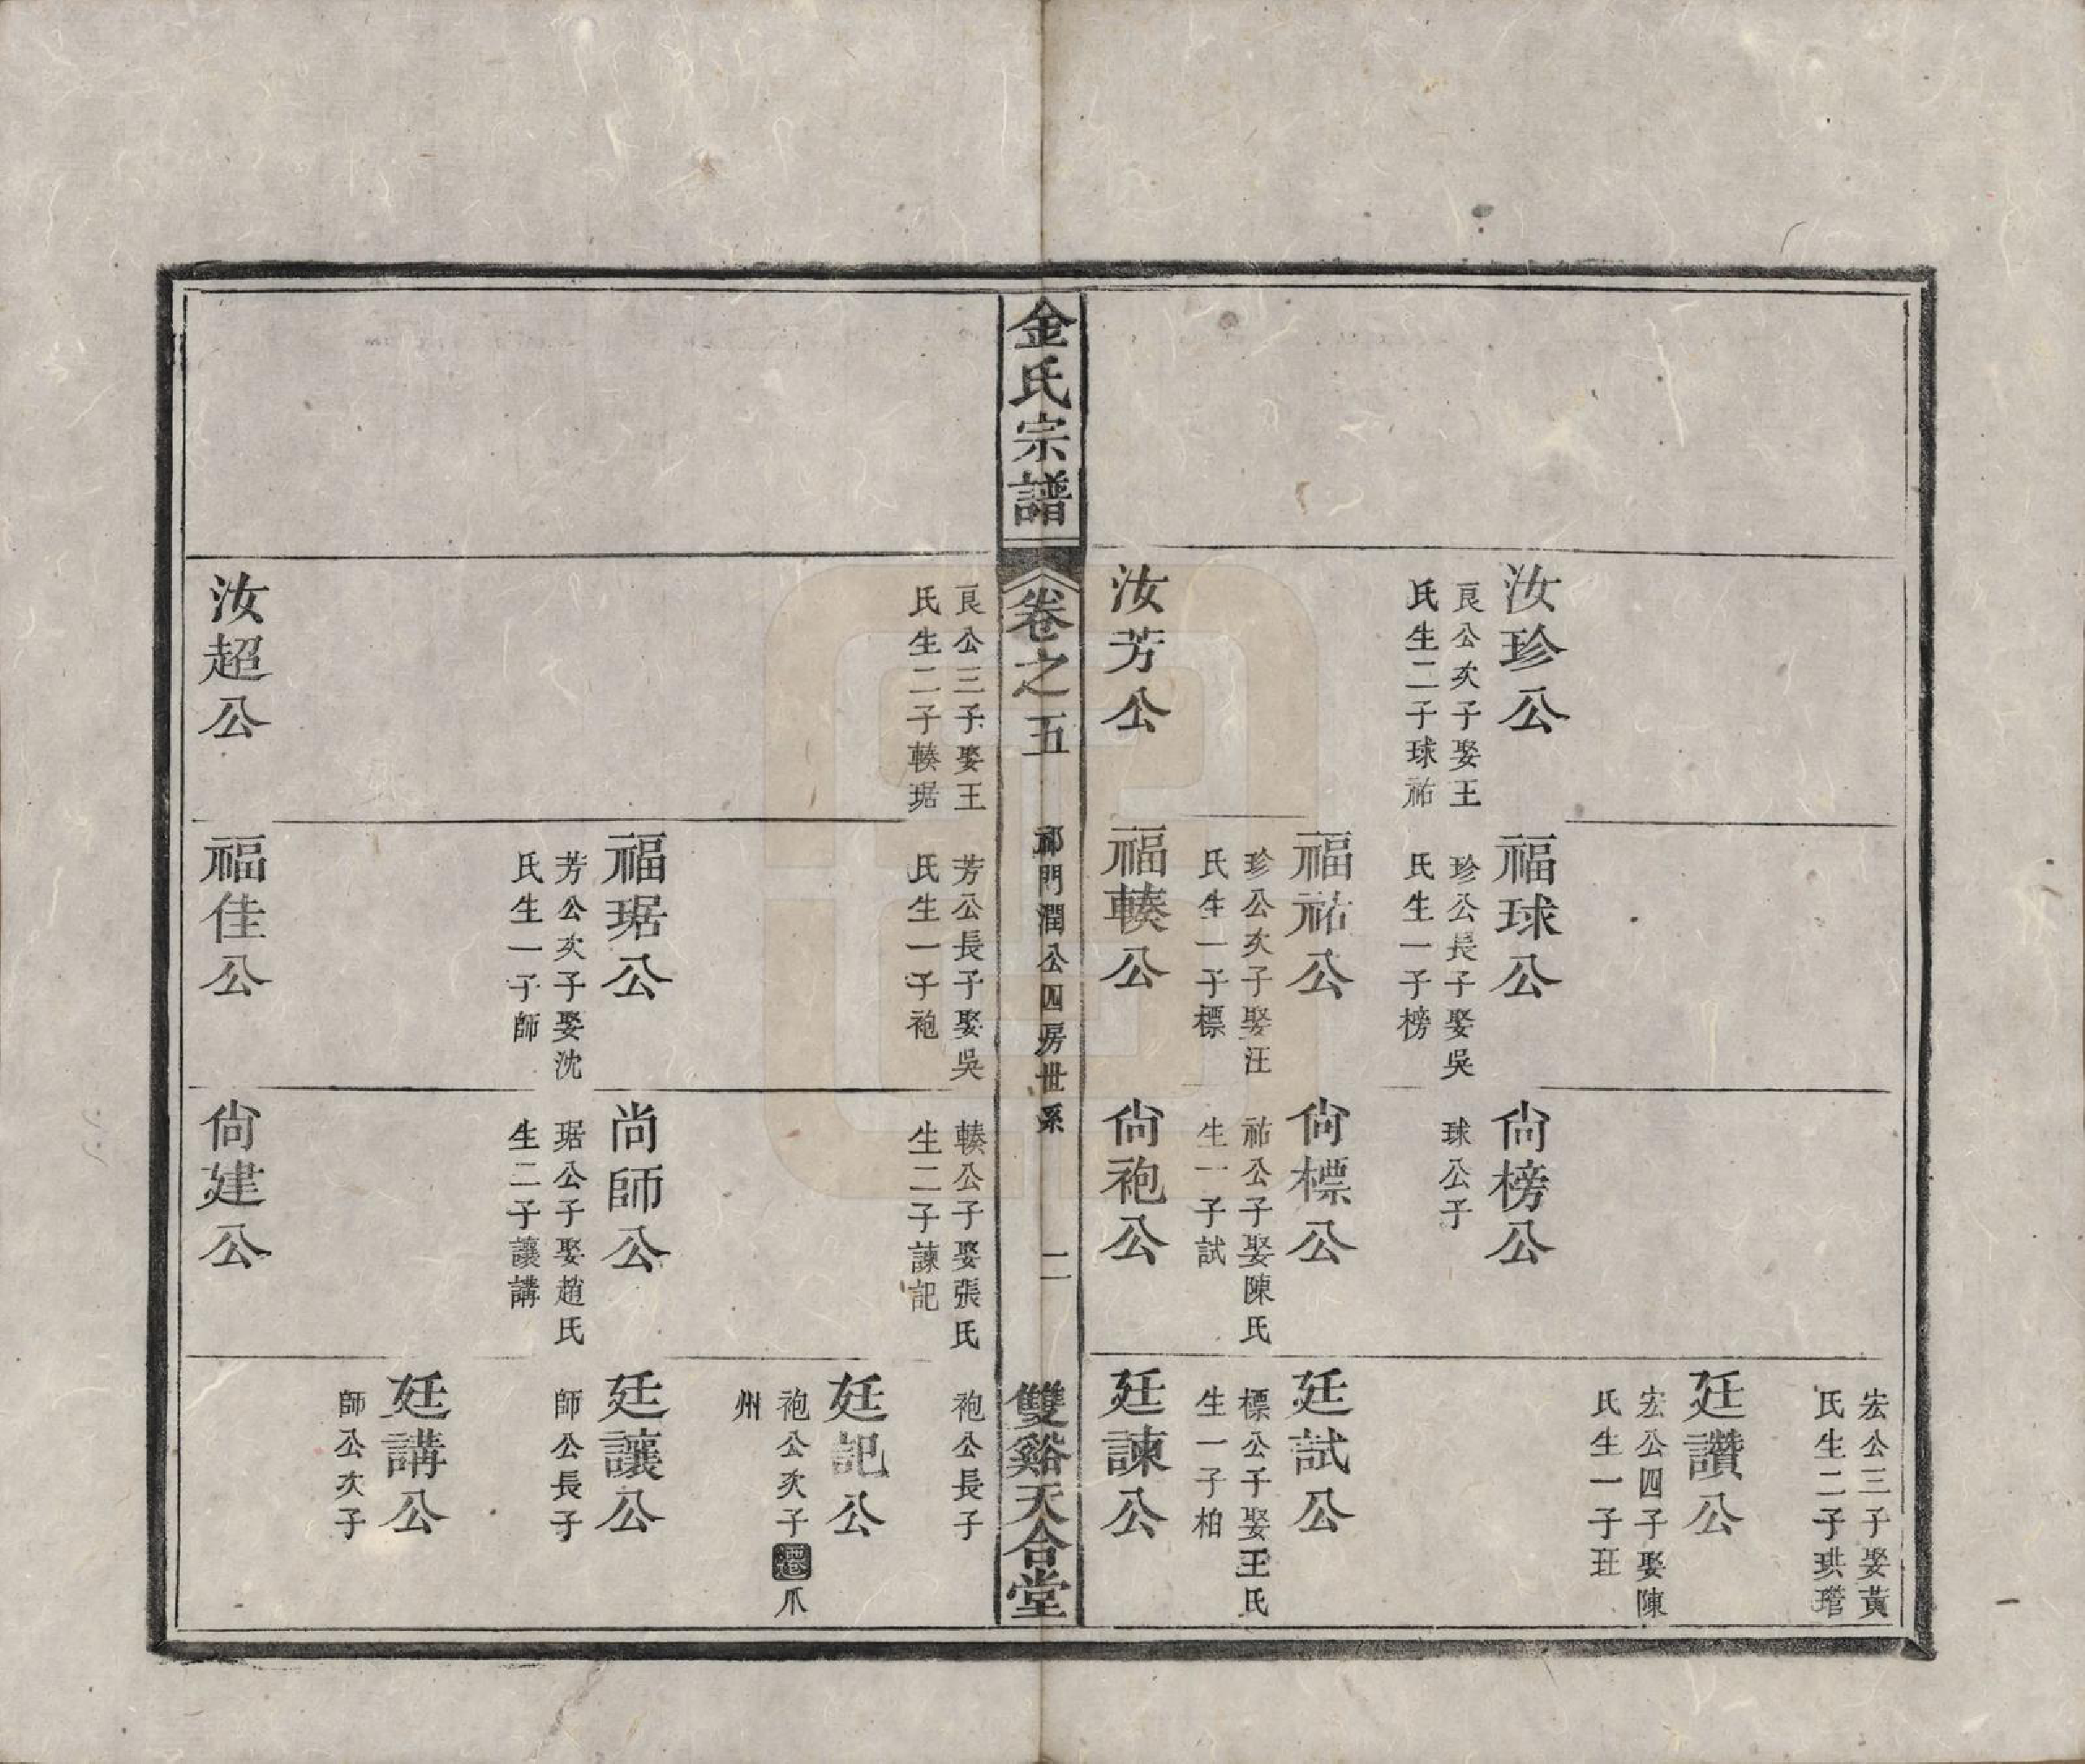 汝珍公
良公次子娶王
氏生二子球祐
汝芳公
福球公
珍公長子娶吳
氏生一子榜
福祐公
珍公次子娶汪
氏生一子標
福輳公
尙榜公
球公子
尙標公
祐公子娶陳氏
生一子試
尙袍公
宏公三子娶黃
氏生二子珙瓘
廷讚公
宏公四子娶陳
氏生一子玨
廷試公
標公子娶王氏
生一子柏
廷諫公
金氏宗譜
卷之五
祁門潤公四房世系
二
雙谿天合堂
良公三子娶王
氏生二子輳琚
汝超公
芳公長子娶吳
氏生一子袍
福琚公
芳公次子娶沈
氏生一子師
福佳公
輳公子娶張氏
生二子諫記
尚師公
琚公子娶趙氏
生二子讓講
尙建公
袍公長子
廷記公
袍公次子遷爪
州
廷讓公
師公長子
廷講公
師公次子